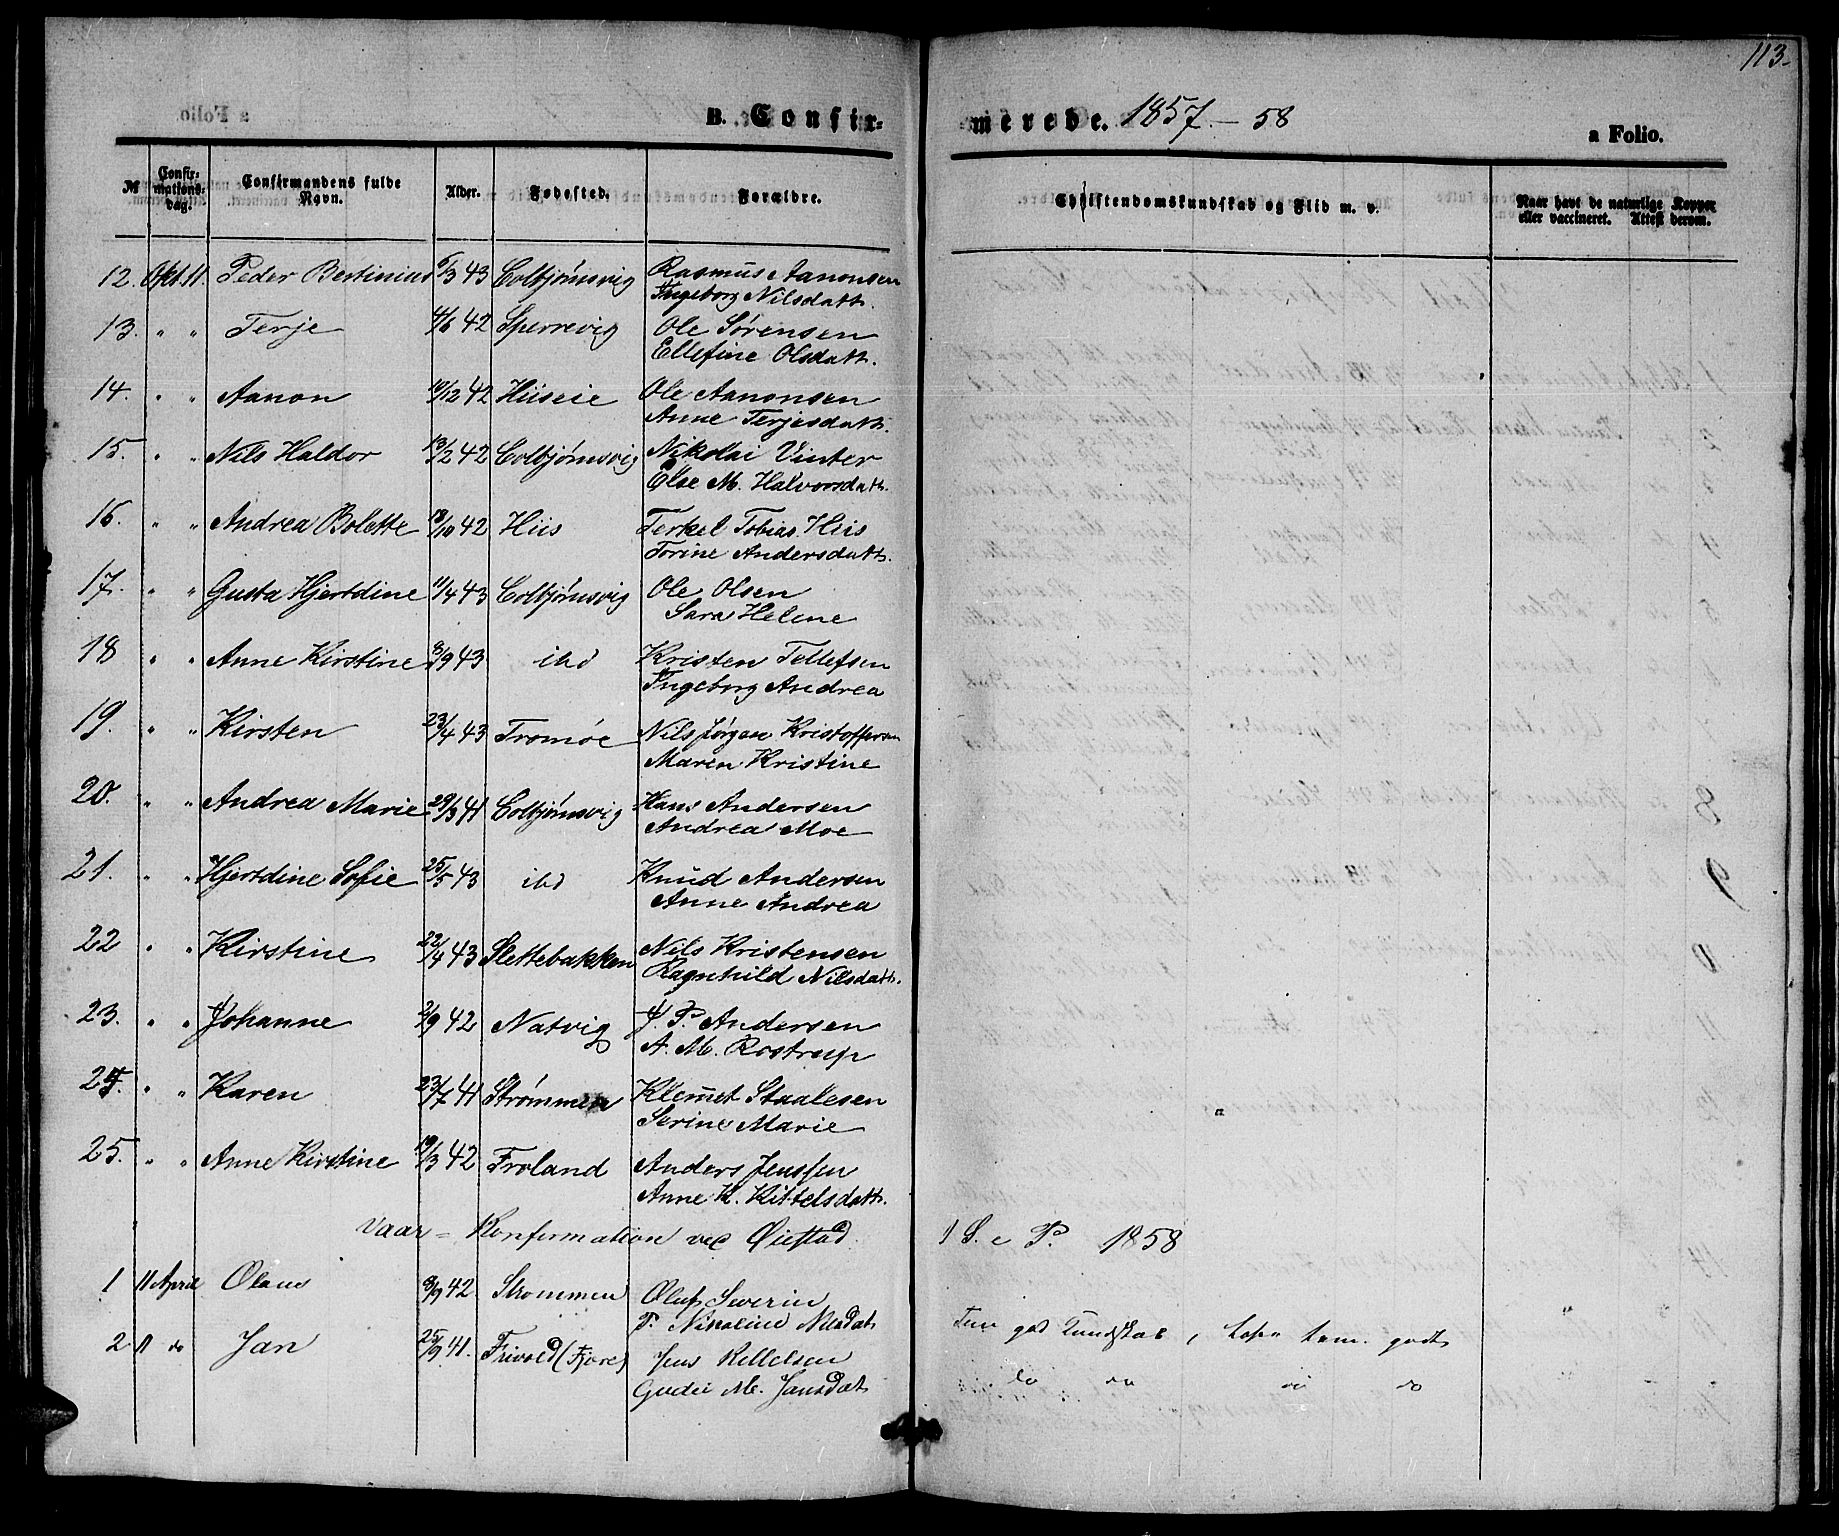 113.
B. Confir=
merede. 1857.-58
a Folio.
№
Confir-
mations-
dag.
Confirmandens fulde
Navn.
Alder.
Fødested.
Forældre.
Christendomskundskab og Flid m. v.
Naar havt de naturlige Kopper
eller vaccineret. Attest derom.
12. Okt. 11. Peder Bertinius 6/3 43 Colbjørnsvig Rasmus Aanonsen
Ingeborg Nilsdatt.
13. " " Terje 4/6 42 Sperrevig Ole Sørensen
Ellefine Olsdatt.
14. " " Aanon 19/12 42 Hiiseie Ole Aanonsen
Anne Terjesdatt.
15. " " Nils Haldor 13/2 42 Colbjørnsvig Nikolai Vinter
Else M. Halvorsdatt.
16. " " Andrea Bolette 18/10 42 Hiis Terkel Tobias. Hiis
Torine Andersdatt.
17. " " Gusta Hjertdine 11/4 43 Colbjørnsvig Ole Olsen
Sara Helene
18 " " Anne Kirstine 8/9 43 ibd Kristen Tellefsen
Ingeborg Andrea
19. " " Kirsten 23/4 43 Tromøe Nils Jørgen Kristoffersen
Maren Kristine
20. " " Andrea Marie 29/3 41 Colbjørnsvig Hans Andersen
Andrea Moe
21. " " Hjertdine Sofie 25/5 43 ibd Knud Andersen
Anne Andrea
22 " " Kirstine 22/4 43 Slettebakken Nils Kristensen
Ragnhild Nilsdatt.
23. " " Johanne 2/9 42 Natvig J. P. Andersen
A. M. Rostrup
24. " " Karen 23/7 41 Strømmen Klemet Staalesen
Serine Marie
25. " " Anne Kirstine 19/3 42 Froland Anders Jenssen
Anne K. Kittelsdatt.
Vaar = Konfermation ved Øiestad 1 S. e P. 1858
1 11 April Olaus 8/9 42 Strømmen Oluf Severin
T. Nikoline Nilsdat
2 11 do Jan 25/9 41. Frivold (Fjære) Jens Kellelsen
Gudei M. Jansdat
god Kundskab, godt
do do do do